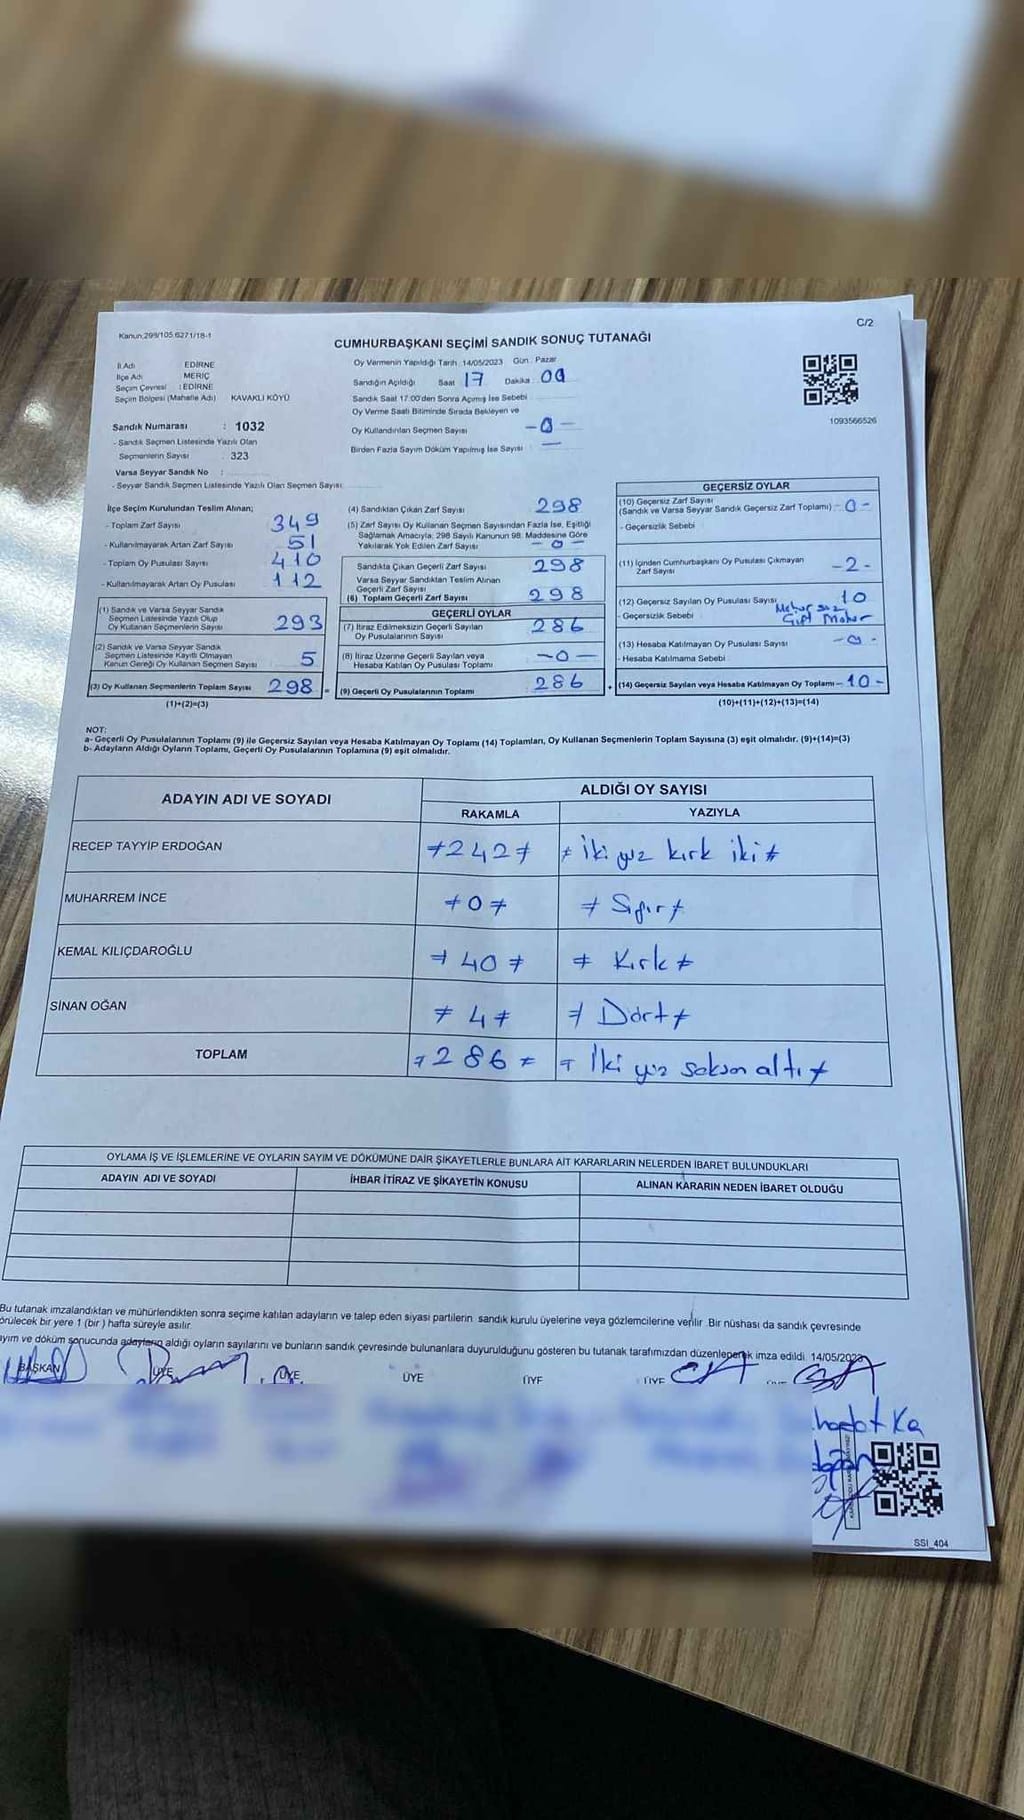 C/2
Kanun:298/105.6271/18-1
CUMHURBAŞKANI SEÇİMİ SANDIK SONUÇ TUTANAĞI
İl Adı EDİRNE
İlçe Adı MERİÇ
Seçim Çevresi : EDİRNE
Seçim Bölgesi (Mahalle Adı) KAVAKLI KÖYÜ
Sandık Numarası : 1032
- Sandık Seçmen Listesinde Yazılı Olan
Seçmenlerin Sayısı 323
Varsa Seyyar Sandık No :
- Seyyar Sandık Seçmen Listesinde Yazılı Olan Seçmen Sayısı
Oy Vermenin Yapıldığı Tarih 14/05/2023 Gün : Pazar
Sandığın Açıldığı Saat 17 Dakika
Sandık Saat 17:00'den Sonra Açımış İse Sebebi
Oy Verme Saati Bitiminde Sırada Bekleyen ve
Oy Kullandırılan Seçmen Sayısı -0-
Birden Fazla Sayım Döküm Yapılmış İse Sayısı : —
1093566526
İlçe Seçim Kurulundan Teslim Alınan;
- Toplam Zarf Sayısı 349
- Kullanılmayarak Artan Zarf Sayısı 51
- Toplam Oy Pusulası Sayısı 410
- Kullanılmayarak Artan Oy Pusulası 112
(1) Sandık ve Varsa Seyyar Sandık
Seçmen Listesinde Yazılı Olup
Oy Kullanan Seçmenlerin Sayısı 293
(2) Sandık ve Varsa Seyyar Sandık
Seçmen Listesinde Kayıtlı Olmayan
Kanun Gereği Oy Kullanan Seçmen Sayısı 5
(3) Oy Kullanan Seçmenlerin Toplam Sayısı 298 =
(1)+(2)=(3)
(4) Sandıktan Çıkan Zarf Sayısı 298
(5) Zarf Sayısı Oy Kullanan Seçmen Sayısından Fazla İse, Eşitliği
Sağlamak Amacıyla; 298 Sayılı Kanunun 98. Maddesine Göre
Yakılarak Yok Edilen Zarf Sayısı - 0 -
Sandıkta Çıkan Geçerli Zarf Sayısı 298
Varsa Seyyar Sandıktan Teslim Alınan
Geçerli Zarf Sayısı
(6) Toplam Geçerli Zarf Sayısı 298
GEÇERLİ OYLAR
(7) İtiraz Edilmeksizin Geçerli Sayılan
Oy Pusulalarının Sayısı 286
(8) İtiraz Üzerine Geçerli Sayılan veya
Hesaba Katılan Oy Pusulası Toplamı -0-
(9) Geçerli Oy Pusulalarının Toplamı 286 +
GEÇERSİZ OYLAR
(10) Geçersiz Zarf Sayısı
(Sandık ve Varsa Seyyar Sandık Geçersiz Zarf Toplamı) - 0 -
- Geçersizlik Sebebi
(11) İçinden Cumhurbaşkanı Oy Pusulası Çıkmayan
Zarf Sayısı -2-
(12) Geçersiz Sayılan Oy Pusulası Sayısı 10
- Geçersizlik Sebebi Mühürsüz
Çift Mühür
(13) Hesaba Katılmayan Oy Pusulası Sayısı -0-
- Hesaba Katılmama Sebebi
(14) Geçersiz Sayılan veya Hesaba Katılmayan Oy Toplamı -10-
(10)+(11)+(12)+(13)=(14)
NOT:
a- Geçerli Oy Pusulalarının Toplamı (9) ile Geçersiz Sayılan veya Hesaba Katılmayan Oy Toplamı (14) Toplamları, Oy Kullanan Seçmenlerin Toplam Sayısına (3) eşit olmalıdır. (9)+(14)=(3)
b- Adayların Aldığı Oyların Toplamı, Geçerli Oy Pusulalarının Toplamına (9) eşit olmalıdır.
ADAYIN ADI VE SOYADI ALDIĞI OY SAYISI
RAKAMLA YAZIYLA
RECEP TAYYİP ERDOĞAN ≠242≠ ≠ İki yüz kırk iki ≠
MUHARREM İNCE ≠0≠ ≠ Sıfır ≠
KEMAL KILIÇDAROĞLU ≠ 40 ≠ ≠ Kırk ≠
SİNAN OĞAN ≠ 4 ≠ ≠ Dört ≠
TOPLAM ≠ 286 ≠ ≠ İki yüz seksen altı ≠
OYLAMA İŞ VE İŞLEMLERİNE VE OYLARIN SAYIM VE DÖKÜMÜNE DAİR ŞİKAYETLERLE BUNLARA AİT KARARLARIN NELERDEN İBARET BULUNDUKLARI
ADAYIN ADI VE SOYADI İHBAR İTİRAZ VE ŞİKAYETİN KONUSU ALINAN KARARIN NEDEN İBARET OLDUĞU
Bu tutanak imzalandıktan ve mühürlendikten sonra seçime katılan adayların ve talep eden siyasi partilerin sandık kurulu üyelerine veya gözlemcilerine verilir. Bir nüshası da sandık çevresinde
örülecek bir yere 1 (bir) hafta süreyle asılır.
ayım ve döküm sonucunda adayların aldığı oyların sayılarını ve bunların sandık çevresinde bulunanlara duyurulduğunu gösteren bu tutanak tarafımızdan düzenlenerek imza edildi. 14/05/2023
BAŞKAN ÜYE ÜYE ÜYE ÜYE ÜYE
SSI_404